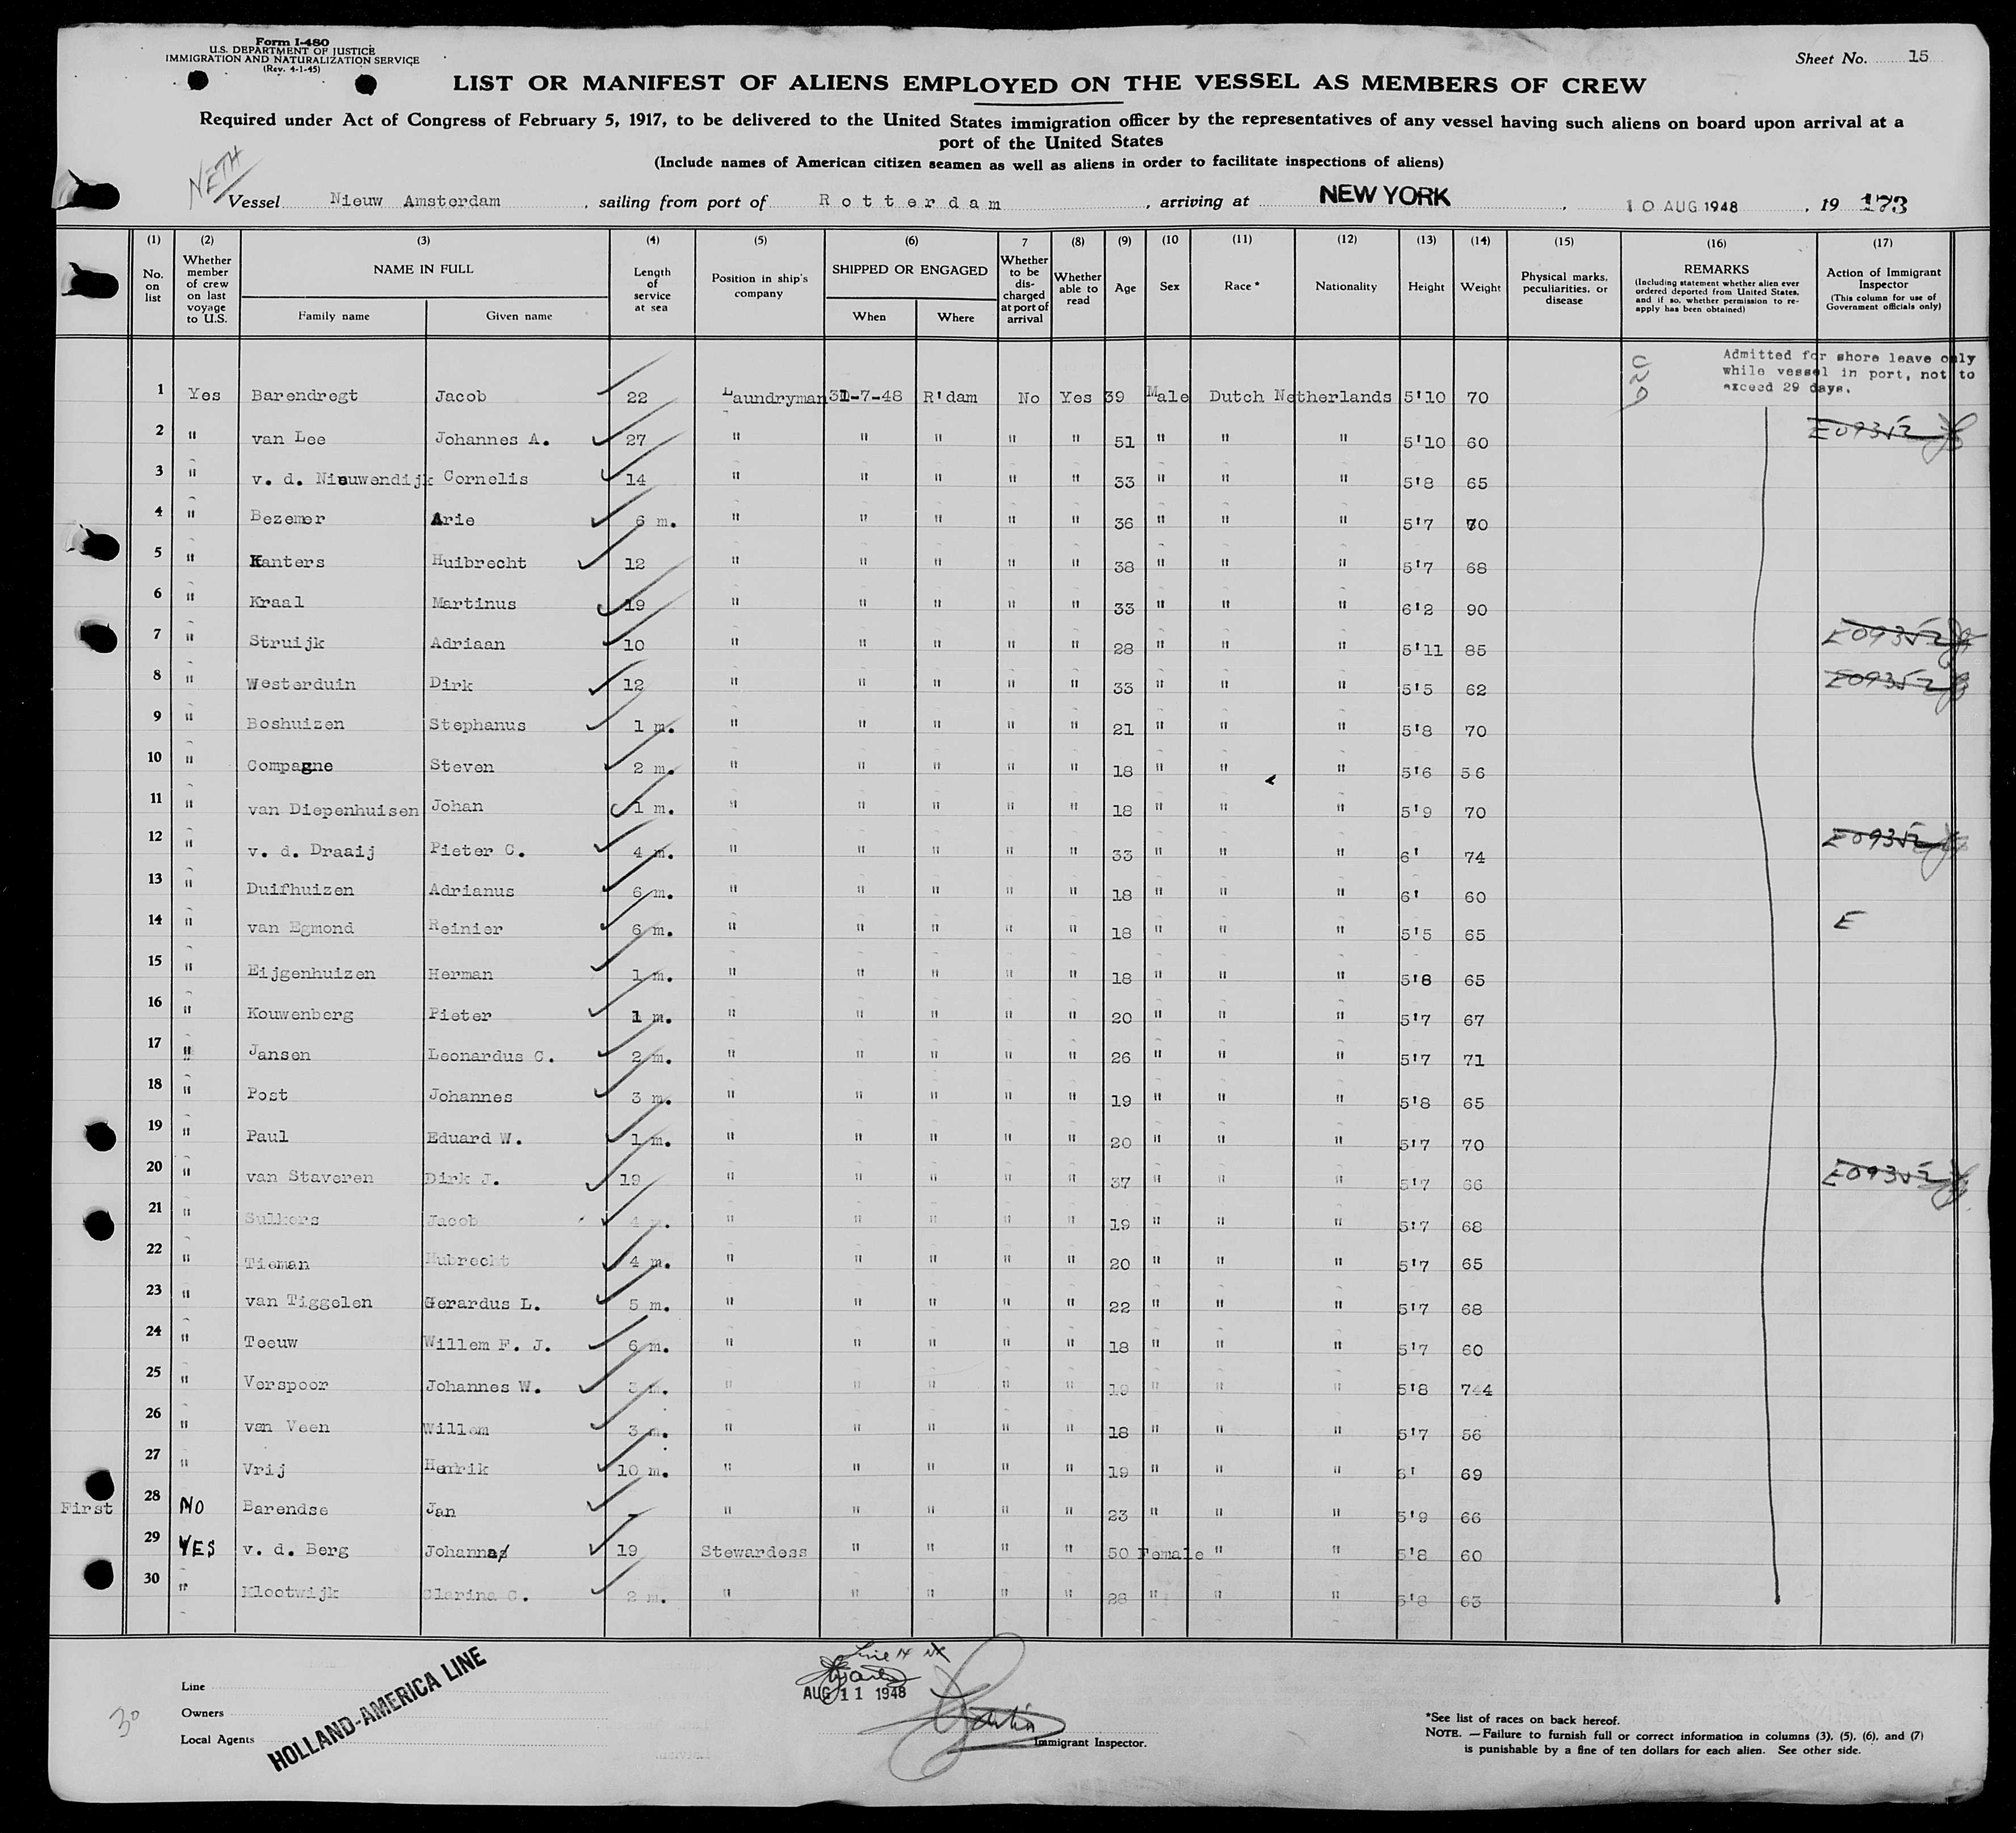 Form I-480
U.S. DEPARTMENT OF JUSTICE
IMMIGRATION AND NATURALIZATION SERVICE
(Rev. 4-1-45)
Sheet No. 15
LIST OR MANIFEST OF ALIENS EMPLOYED ON THE VESSEL AS MEMBERS OF CREW
Required under Act of Congress of February 5, 1917, to be delivered to the United States immigration officer by the representatives of any vessel having such aliens on board upon arrival at a
port of the United States
(Include names of American citizen seamen as well as aliens in order to facilitate inspections of aliens)
NETH
Vessel Nieuw Amsterdam, sailing from port of Rotterdam, arriving at NEW YORK, 10 AUG 1948, 19 173
(1) (2) (3) (4) (5) (6) 7 (8) (9) (10 (11) (12) (13) (14) (15) (16) (17)
No. on list
Whether member of crew on last voyage to U.S.
NAME IN FULL
Family name
Given name
Length of service at sea
Position in ship's company
SHIPPED OR ENGAGED
When
Where
Whether to be discharged at port of arrival
Whether able to read
Age
Sex
Race *
Nationality
Height
Weight
Physical marks, peculiarities, or disease
REMARKS
(Including statement whether alien ever ordered deported from United States, and if so, whether permission to re-apply has been obtained)
Action of Immigrant Inspector
(This column for use of Government officials only)
Admitted for shore leave only
while vessel in port, not to
exceed 29 days.
1 Yes Barendregt Jacob 22 Laundryman 31-7-48 R'dam No Yes 39 Male Dutch Netherlands 5'10 70
2 " van Lee Johannes A. 27 " " " " " 51 " " " 5'10 60 E09352
3 " v. d. Nieuwendijk Cornelis 14 " " " " " 33 " " " 5'8 65
4 " Bezemer Arie 6 m. " " " " " 36 " " " 5'7 70
5 " Kanters Huibrecht 12 " " " " " 38 " " " 5'7 68
6 " Kraal Martinus 19 " " " " " 33 " " " 6'2 90
7 " Struijk Adriaan 10 " " " " " 28 " " " 5'11 85 E09352
8 " Westerduin Dirk 12 " " " " " 33 " " " 5'5 62 E09352
9 " Boshuizen Stephanus 1 m. " " " " " 21 " " " 5'8 70
10 " Compagne Steven 2 m. " " " " " 18 " " " 5'6 56
11 " van Diepenhuisen Johan 1 m. " " " " " 18 " " " 5'9 70
12 " v. d. Draaij Pieter C. 4 m. " " " " " 33 " " " 6' 74 E09352
13 " Duifhuizen Adrianus 6 m. " " " " " 18 " " " 6' 60
14 " van Egmond Reinier 6 m. " " " " " 18 " " " 5'5 65 E
15 " Eijgenhuizen Herman 1 m. " " " " " 18 " " " 5'8 65
16 " Kouwenberg Pieter 1 m. " " " " " 20 " " " 5'7 67
17 " Jansen Leonardus C. 2 m. " " " " " 26 " " " 5'7 71
18 " Post Johannes 3 m. " " " " " 19 " " " 5'8 65
19 " Paul Eduard W. 1 m. " " " " " 20 " " " 5'7 70
20 " van Staveren Dirk J. 19 " " " " " 37 " " " 5'7 66 E09352
21 " Sulkers Jacob 4 m. " " " " " 19 " " " 5'7 68
22 " Tieman Hubrecht 4 m. " " " " " 20 " " " 5'7 65
23 " van Tiggelen Gerardus L. 5 m. " " " " " 22 " " " 5'7 68
24 " Teeuw Willem F. J. 6 m. " " " " " 18 " " " 5'7 60
25 " Verspoor Johannes W. 3 m. " " " " " 19 " " " 5'8 744
26 " van Veen Willem 3 m. " " " " " 18 " " " 5'7 56
27 " Vrij Hendrik 10 m. " " " " " 19 " " " 6' 69
First 28 NO Barendse Jan - " " " " " 23 " " " 5'9 66
29 YES v. d. Berg Johanna 19 Stewardess " " " " 50 Female " " 5'8 60
30 " Klootwijk Clarina C. 2 m. " " " " " 28 " " " 5'8 63
Line 14
AUG 11 1948
30
Line
Owners
Local Agents
HOLLAND-AMERICA LINE
Immigrant Inspector.
*See list of races on back hereof.
NOTE. —Failure to furnish full or correct information in columns (3), (5), (6), and (7)
is punishable by a fine of ten dollars for each alien. See other side.